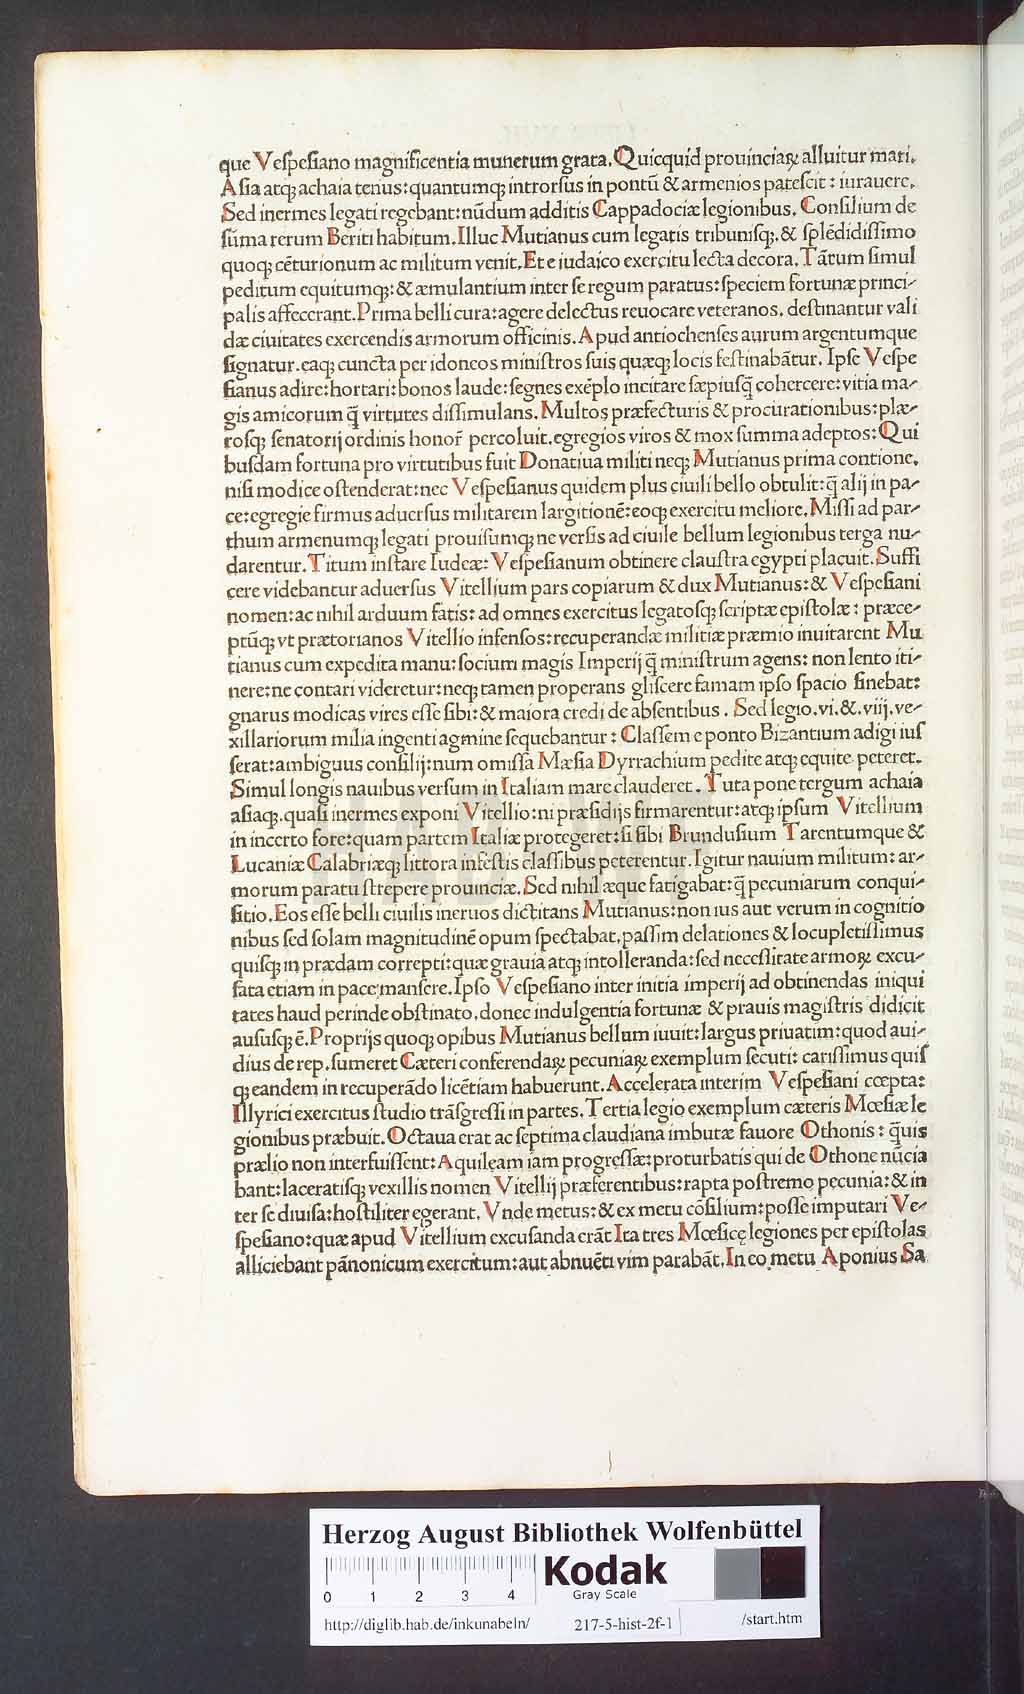 que Veſpeſiano magnificentia munerum grata. Quicquid prouinciaꝝ alluitur mari.
Aſia atqꝫ achaia tenus: quantumqꝫ introrſus in pontū & armenios pateſcit: iurauere.
Sed inermes legati regebant: nūdum additis Cappadociæ legionibus. Conſilium de
ſūma rerum Beriti habitum. Illuc Mutianus cum legatis tribuniſqꝫ. & ſplēdidiſſimo
quoqꝫ cēturionum ac militum venit. Et e iudaico exercitu lecta decora. Tātum ſimul
peditum equitumqꝫ: & æmulantium inter ſe regum paratus: ſpeciem fortunæ princi-
palis affecerant. Prima belli cura: agere delectus reuocare veteranos. deſtinantur vali
dæ ciuitates exercendis armorum officinis. Apud antiochenſes aurum argentumque
ſignatur. eaqꝫ cuncta per idoneos miniſtros ſuis quæqꝫ locis feſtinabātur. Ipſe Veſpe
ſianus adire: hortari: bonos laude: ſegnes exēplo incitare ſæpiuſq̄ cohercere: vitia ma-
gis amicorum q̄ virtutes diſſimulans. Multos præfecturis & procurationibus: plæ-
roſqꝫ ſenatorij ordinis honor̄ percoluit. egregios viros & mox ſumma adeptos: Qui
buſdam fortuna pro virtutibus fuit Donatiua militi neqꝫ Mutianus prima contione.
niſi modice oſtenderat: nec Veſpeſianus quidem plus ciuili bello obtulit: q̄ alij in pa-
ce: egregie firmus aduerſus militarem largitionē: eoqꝫ exercitu meliore. Miſſi ad par-
thum armenumqꝫ legati prouiſumqꝫ ne verſis ad ciuile bellum legionibus terga nu-
darentur. Titum inſtare Iudeæ: Veſpeſianum obtinere clauſtra egypti placuit. Suffi
cere videbantur aduerſus Vitellium pars copiarum & dux Mutianus: & Veſpeſiani
nomen: ac nihil arduum fatis: ad omnes exercitus legatoſqꝫ ſcriptæ epiſtolæ: præce-
ptūqꝫ vt prætorianos Vitellio infenſos: recuperandæ militiæ præmio inuitarent Mu
tianus cum expedita manu: ſocium magis Imperij q̄ miniſtrum agens: non lento iti-
nere: ne contari videretur: neqꝫ tamen properans gliſcere famam ipſo ſpacio ſinebat:
gnarus modicas vires eſſe ſibi: & maiora credi de abſentibus. Sed legio. vi. &. viij. ve-
xillariorum milia ingenti agmine ſequebantur: Claſſem e ponto Bizantium adigi iuſ
ſerat: ambiguus conſilij: num omiſſa Mæſia Dyrrachium pedite atqꝫ equite peteret.
Simul longis nauibus verſum in Italiam mare clauderet. Tuta pone tergum achaia
aſiaqꝫ. quaſi inermes exponi Vitellio: ni præſidijs firmarentur: atqꝫ ipſum Vitellium
in incerto fore: quam partem Italiæ protegeret: ſi ſibi Brunduſium Tarentumque &
Lucaniæ Calabriæqꝫ littora infeſtis claſſibus peterentur. Igitur nauium militum: ar-
morum paratu ſtrepere prouinciæ. Sed nihil æque fatigabat: q̄ pecuniarum conqui-
ſitio. Eos eſſe belli ciuilis ineruos dictitans Mutianus: non ius aut verum in cognitio
nibus ſed ſolam magnitudinē opum ſpectabat. paſſim delationes & locupletiſſimus
quiſqꝫ in prædam correpti: quæ grauia atqꝫ intolleranda: ſed neceſſitate armoꝝ excu-
ſata etiam in pace manſere. Ipſo Veſpeſiano inter initia imperij ad obtinendas iniqui
tates haud perinde obſtinato. donec indulgentia fortunæ & prauis magiſtris didicit
auſuſqꝫ ē. Proprijs quoqꝫ opibus Mutianus bellum iuuit: largus priuatim: quod aui-
dius de rep. ſumeret Cæteri conferendaꝝ pecuniaꝝ exemplum ſecuti: cariſſimus quiſ
qꝫ eandem in recuperādo licētiam habuerunt. Accelerata interim Veſpeſiani cœpta:
Illyrici exercitus ſtudio trāſgreſſi in partes. Tertia legio exemplum cæteris Mœſiæ le
gionibus præbuit. Octaua erat ac ſeptima claudiana imbutæ fauore Othonis: q̄uis
prælio non interfuiſſent: Aquileam iam progreſſæ: proturbatis qui de Othone nūcia
bant: laceratiſqꝫ vexillis nomen Vitellij præferentibus: rapta poſtremo pecunia: & in
ter ſe diuiſa: hoſtiliter egerant. Vnde metus: & ex metu cōſilium: poſſe imputari Ve-
ſpeſiano: quæ apud Vitellium excuſanda erāt Ita tres Mœſicę legiones per epiſtolas
alliciebant pānonicum exercitum: aut abnuēti vim parabāt. In eo metu Aponius Sa
Herzog August Bibliothek Wolfenbüttel
Kodak
Gray Scale
0 1 2 3 4
http://diglib.hab.de/inkunabeln/ 217-5-hist-2f-1 /start.htm